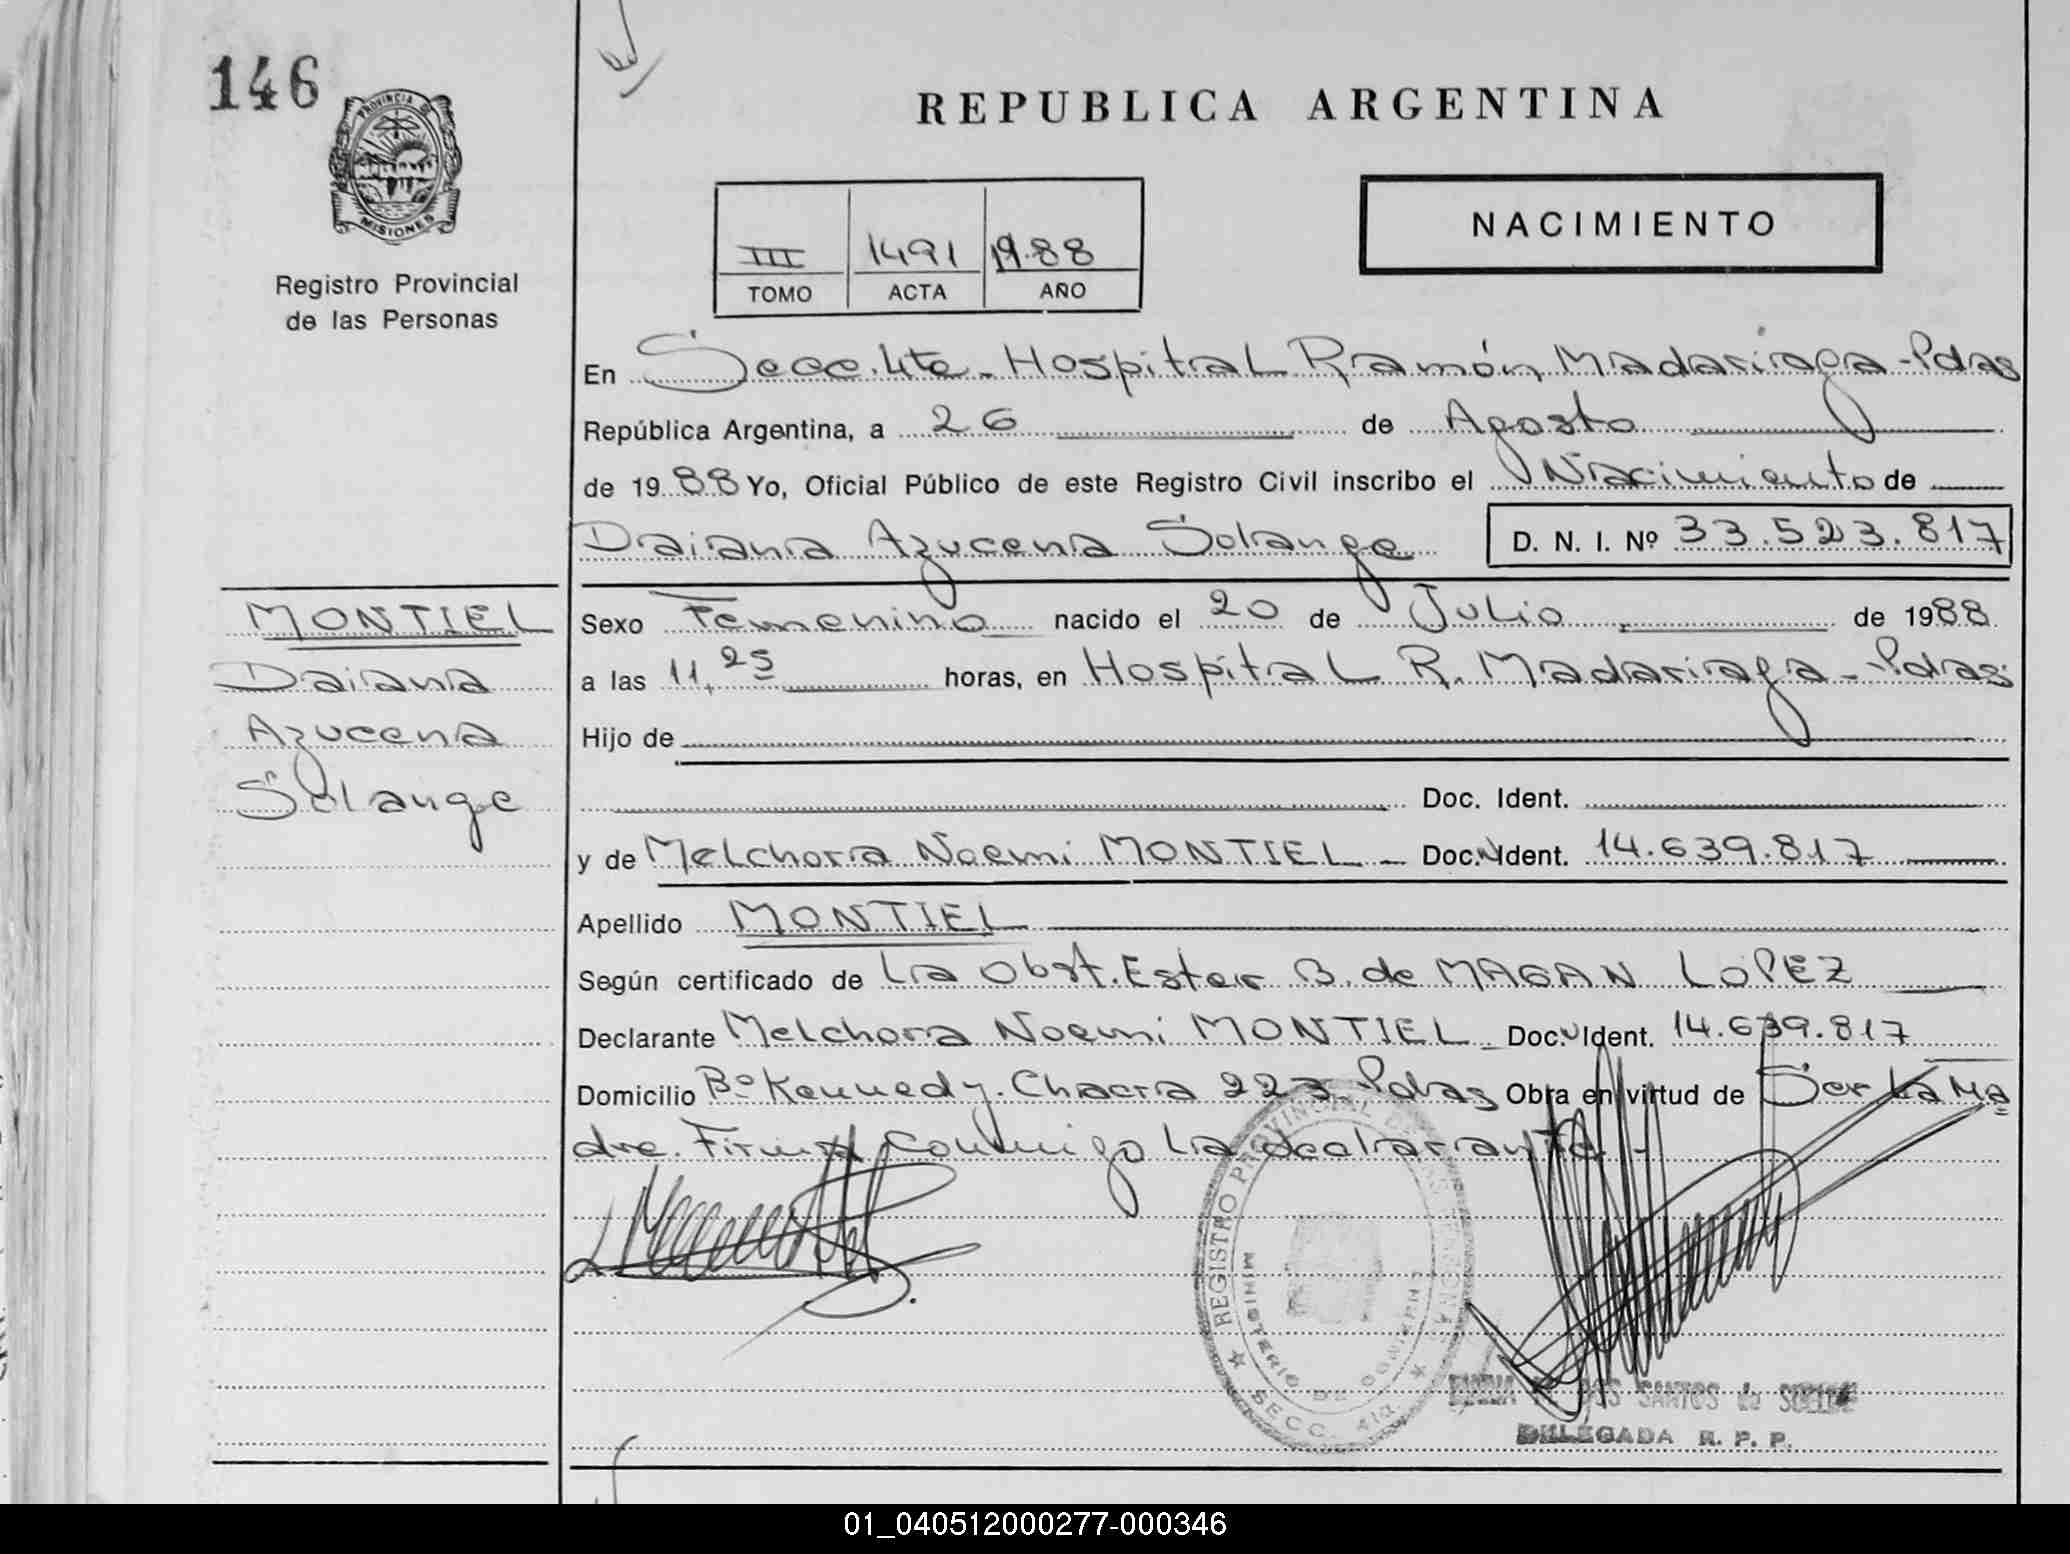 146
PROVINCIA DE
MISIONES
Registro Provincial
de las Personas
REPUBLICA ARGENTINA
NACIMIENTO
III 1491 1988
TOMO ACTA AÑO
En Secc. 4ta - Hospital Ramón Madariaga - Pdas
República Argentina, a 26 de Agosto
de 1988 Yo, Oficial Público de este Registro Civil inscribo el Nacimiento de
Daiana Azucena Solange D. N. I. Nº 33.523.817
MONTIEL
Daiana
Azucena
Solange
Sexo Femenino nacido el 20 de Julio de 1988
a las 11,25 horas, en Hospital R. Madariaga - Pdas
Hijo de
Doc. Ident.
y de Melchora Noemi MONTIEL - Doc. Ident. 14.639.817
Apellido MONTIEL
Según certificado de La Obst. Ester B. de MAGAN LOPEZ
Declarante Melchora Noemi MONTIEL - Doc. Ident. 14.639.817
Domicilio Bº Kennedy. Chacra 223 Pdas Obra en virtud de Ser La Ma
dre. Firma Conmigo La declarante -
REGISTRO PROVINCIAL DE LAS PERSONAS
MINISTERIO DE GOBIERNO
SECC. 4ta.
DOS SANTOS de
DELEGADA R. P. P.
01_040512000277-000346